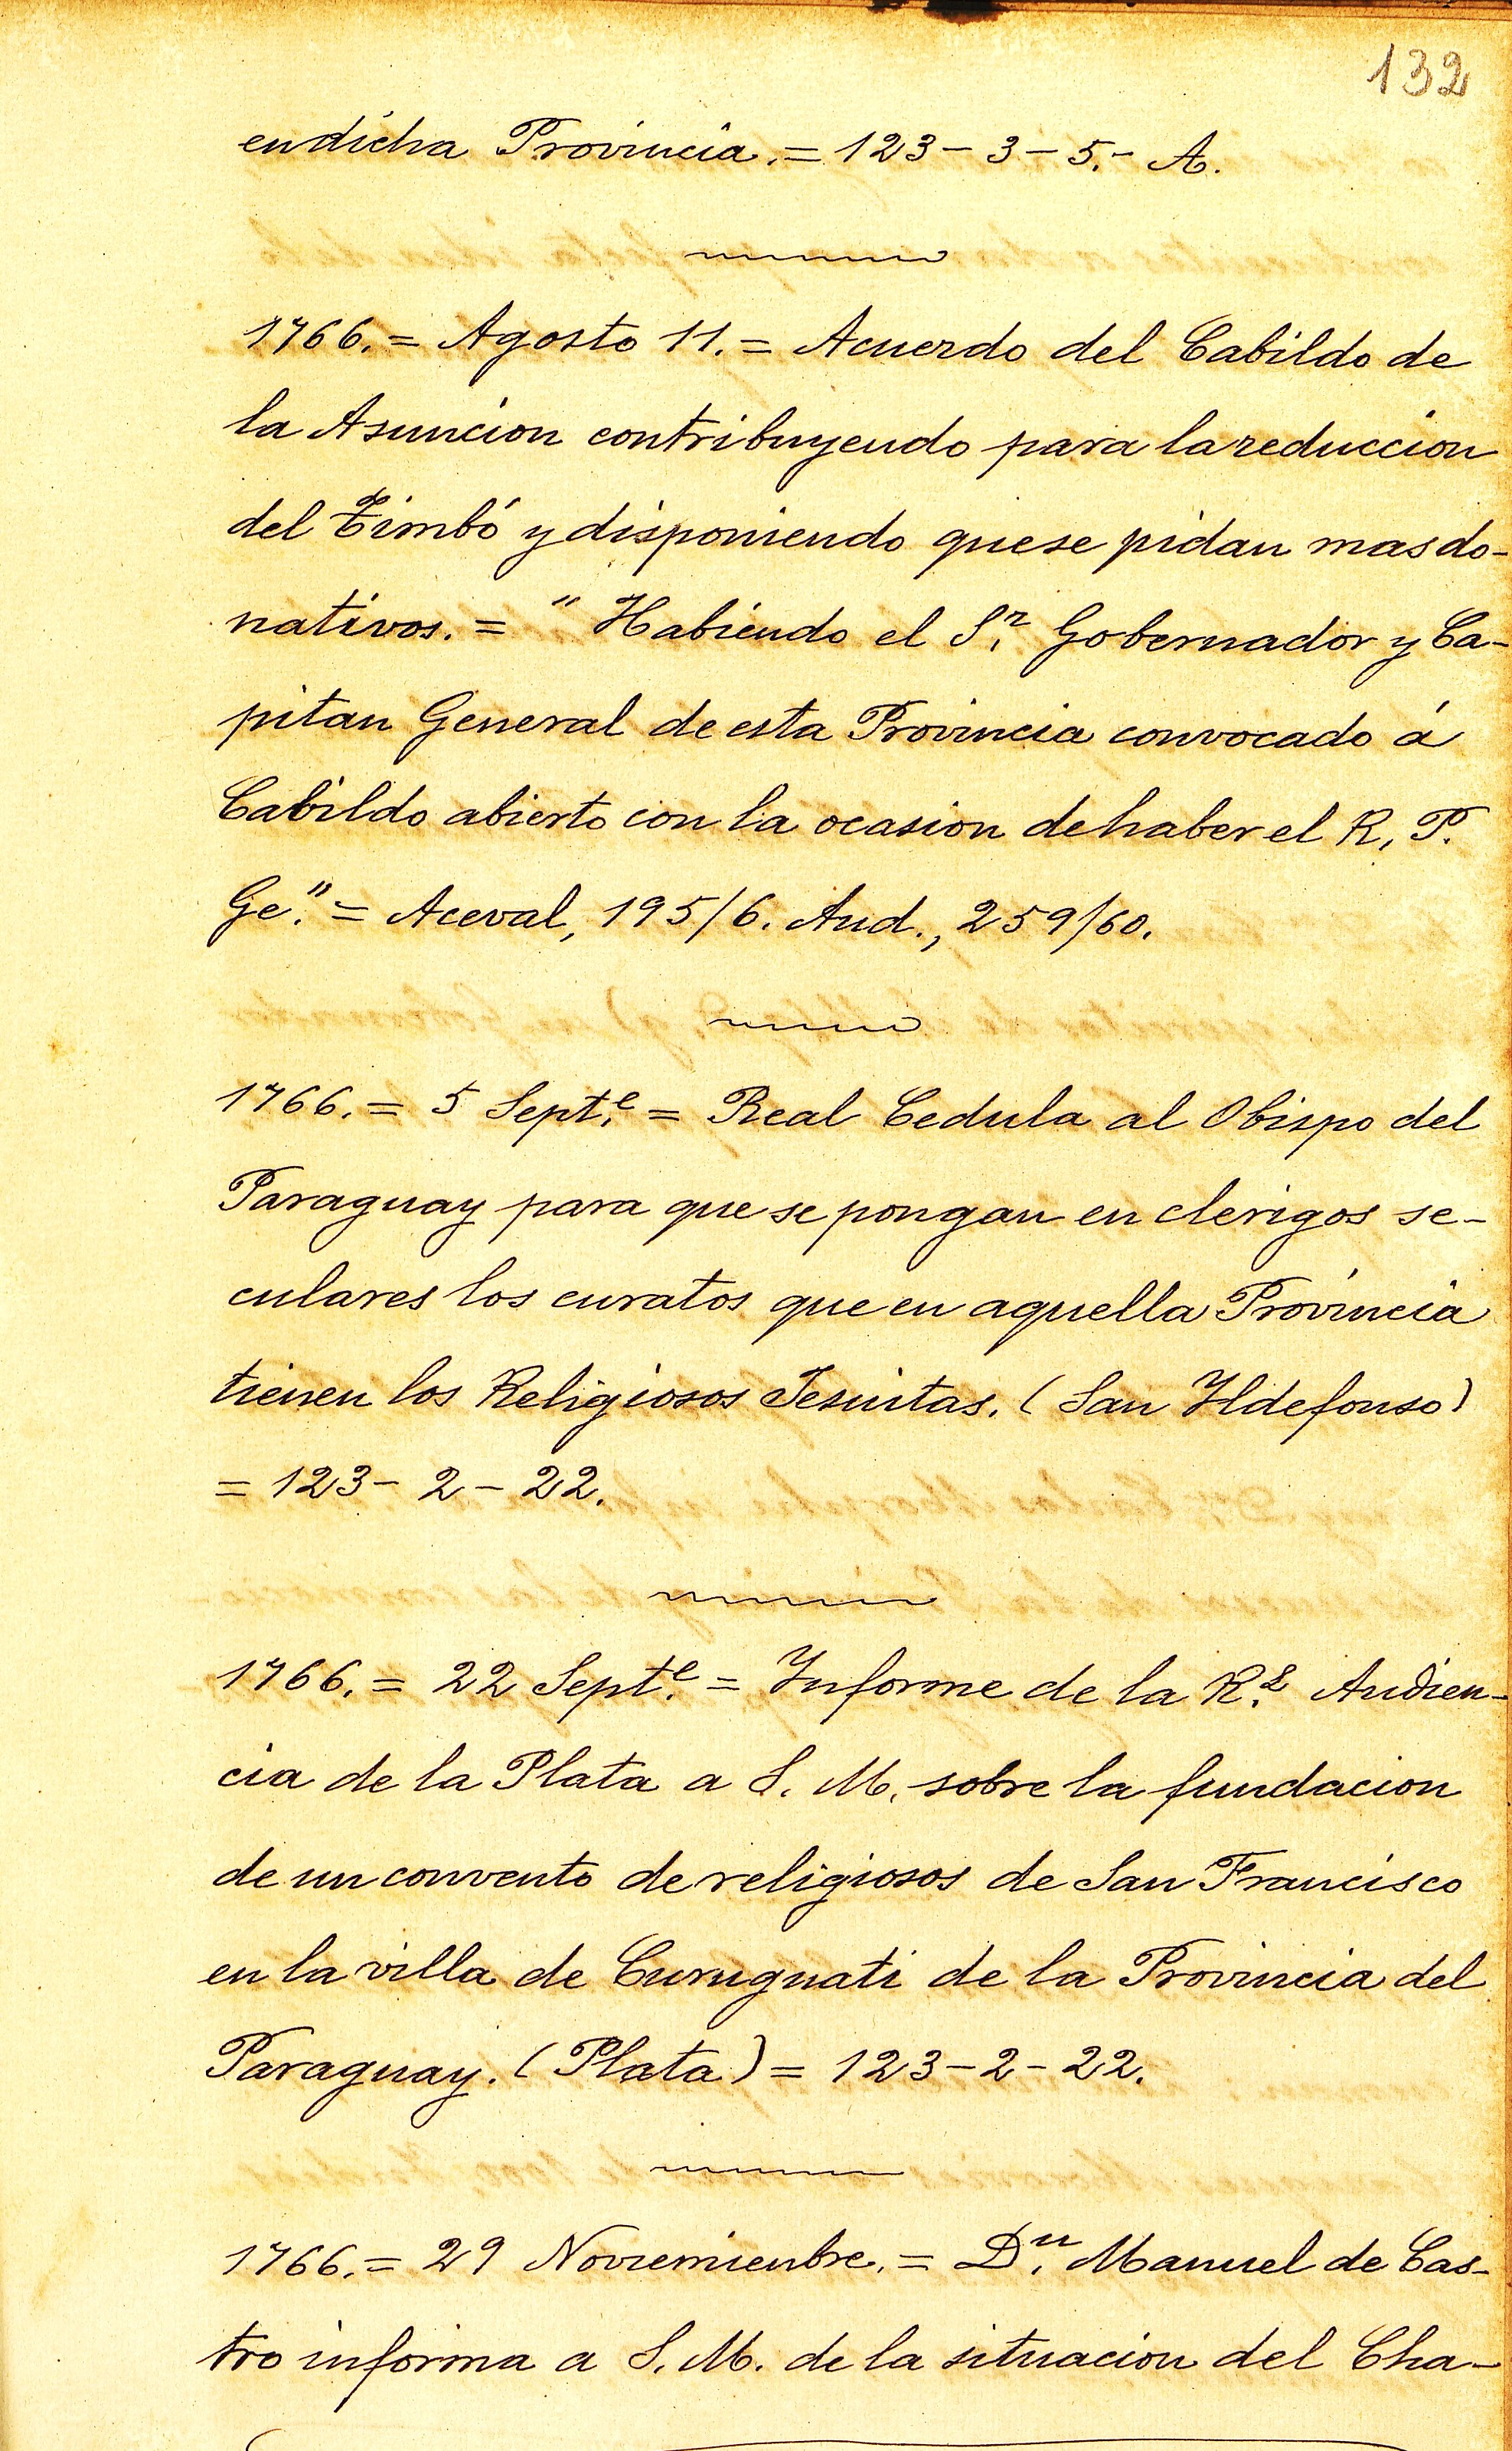 132
en dicha Provincia. = 123 - 3 - 5. - A.
1766. = Agosto 11. = Acuerdo del Cabildo de
la Asuncion contribuyendo para la reduccion
del Timbó y disponiendo que se pidan mas do-
nativos. = " Habiendo el S.r Gobernador y Ca-
pitan General de esta Provincia convocado á
Cabildo abierto con la ocasion de haber el R. P.
Ge." = Aceval, 195/6. Aud., 259/60.
1766. = 5 Sept.e = Real Cedula al Obispo del
Paraguay para que se pongan en clerigos se-
culares los curatos que en aquella Provincia
tienen los Religiosos Jesuitas. (San Ildefonso)
= 123 - 2 - 22.
1766. = 22 Sept.e = Informe de la R.l Audien-
cia de la Plata a S. M. sobre la fundacion
de un convento de religiosos de San Francisco
en la villa de Curuguati de la Provincia del
Paraguay. (Plata) = 123 - 2 - 22.
1766. = 29 Noviemienbre. = D.n Manuel de Cas-
tro informa a S. M. de la situacion del Cha-